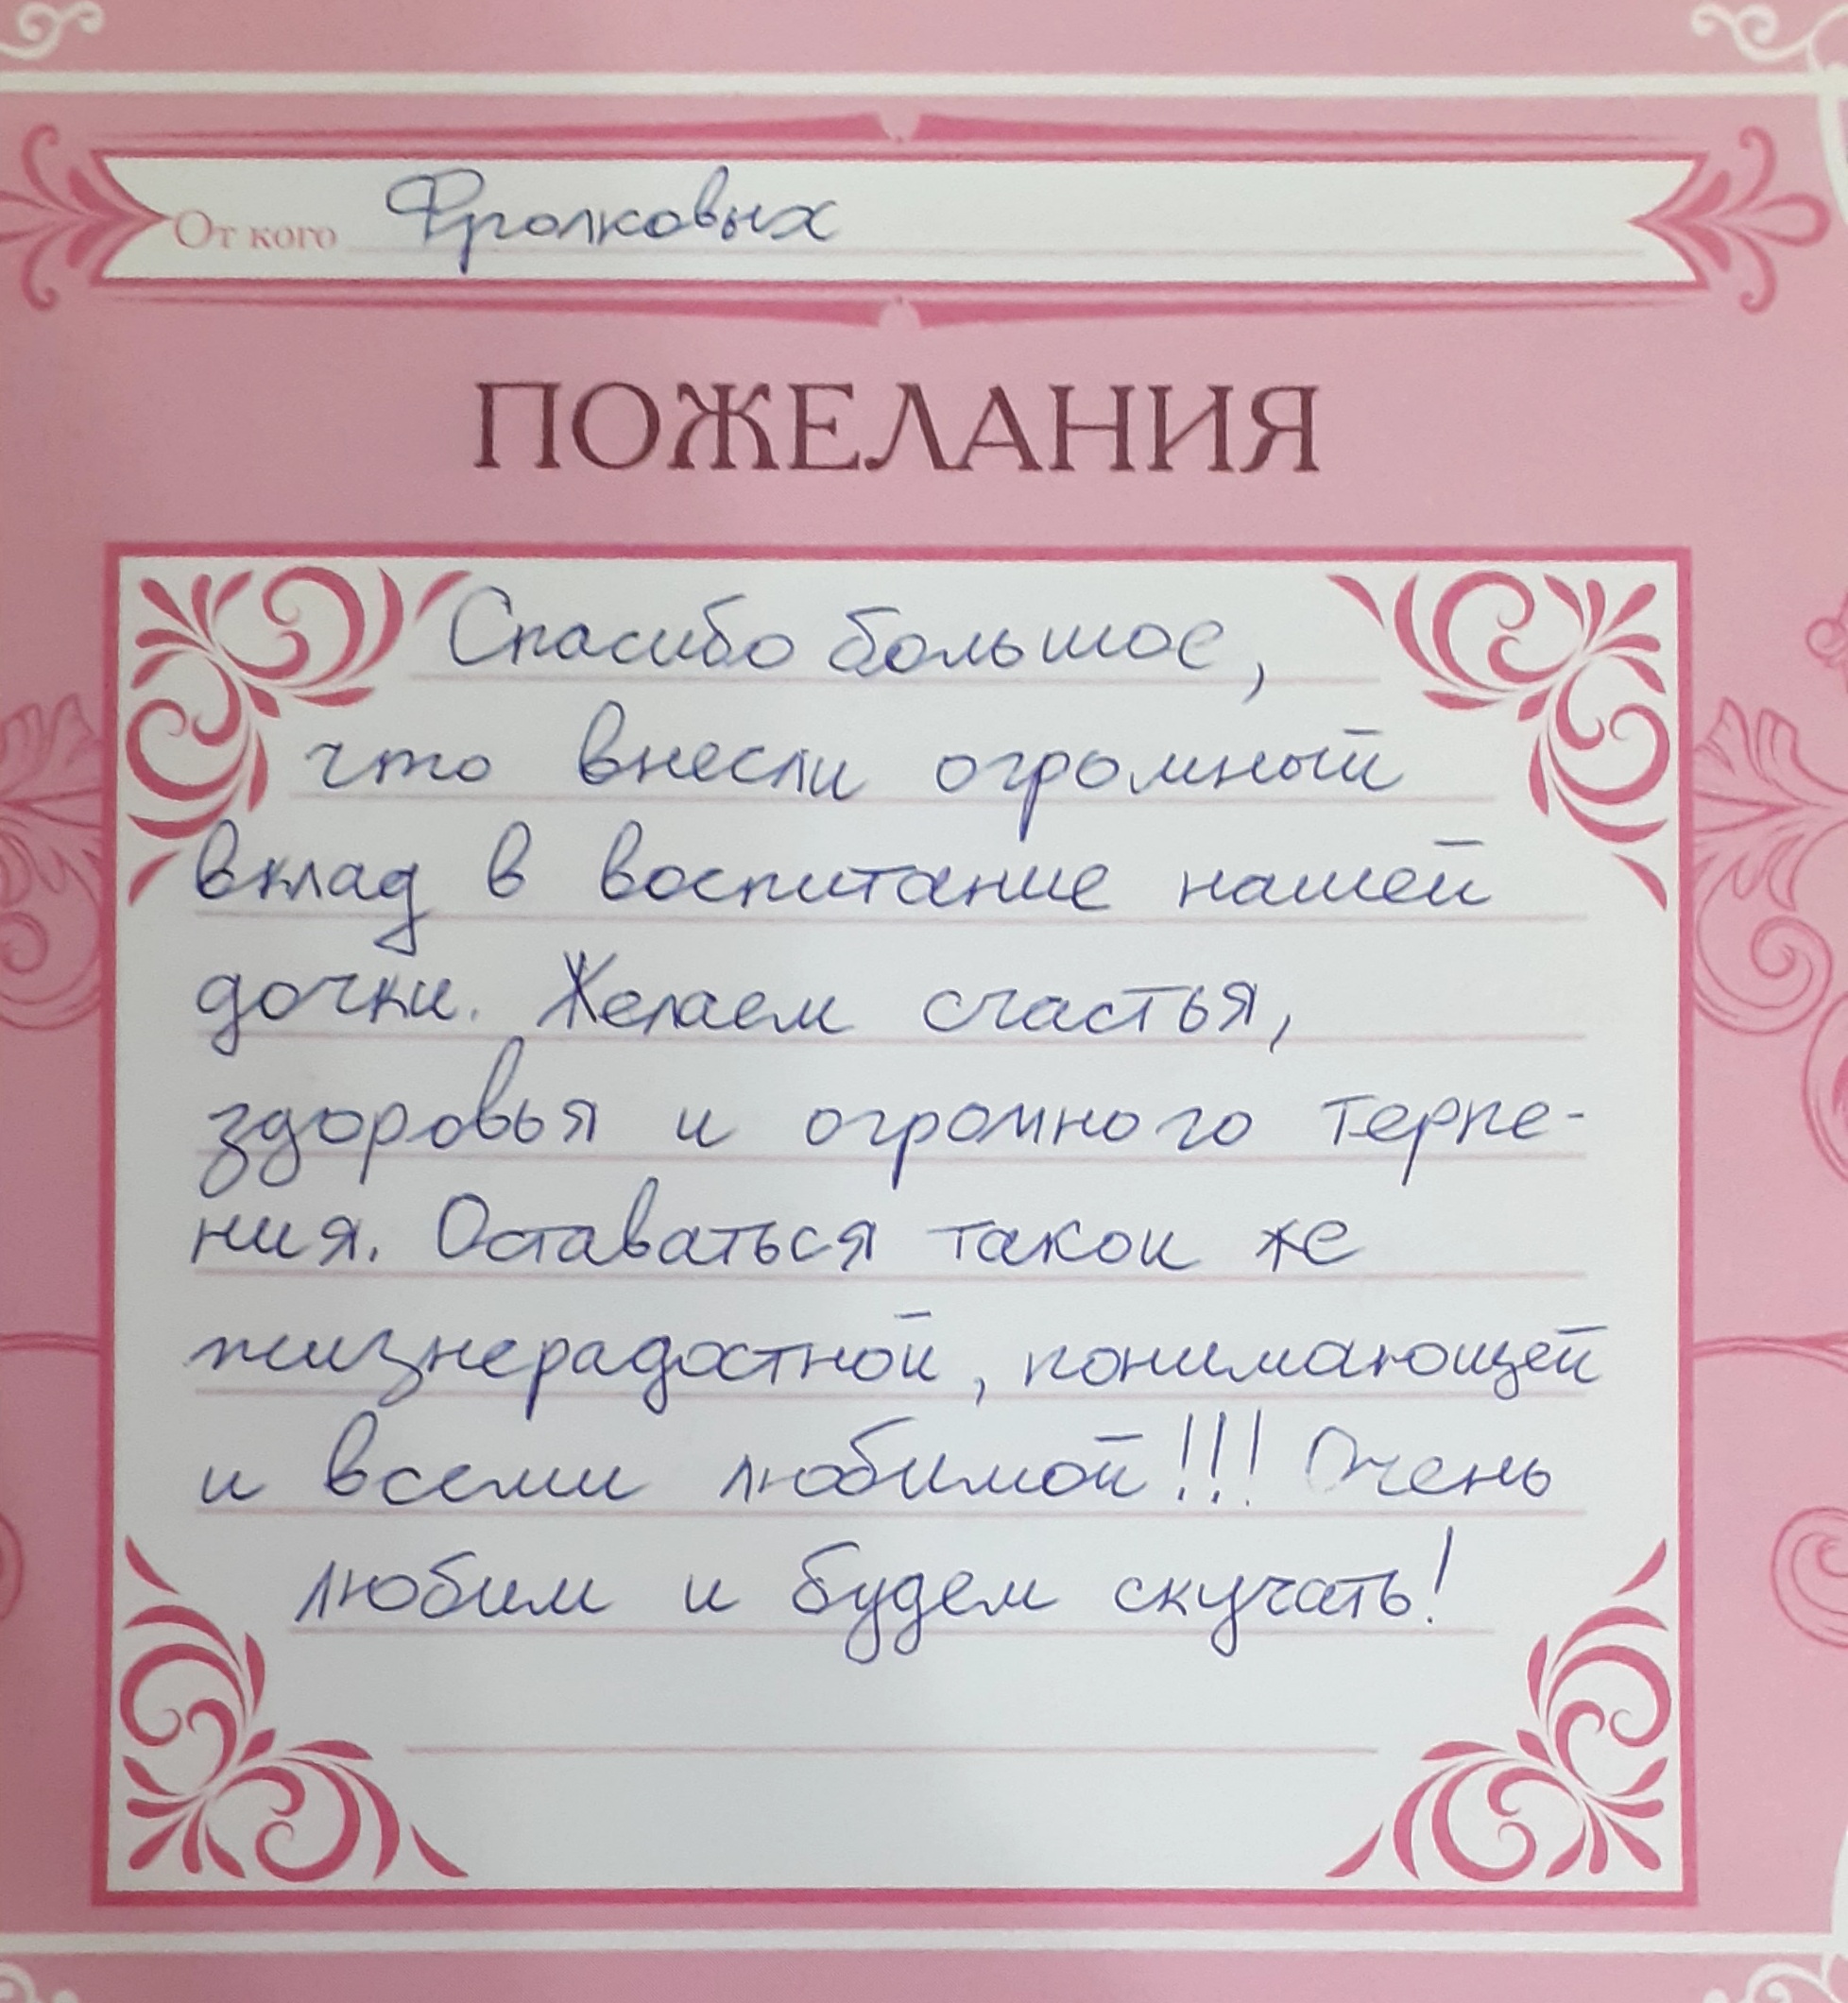 От кого Фролковых
ПОЖЕЛАНИЯ
Спасибо большое,
что внесли огромный
вклад в воспитание нашей
дочки. Желаем счастья,
здоровья и огромного терпе-
ния. Оставаться такои же
жизнерадостной, понимающей
и всеми любимой!!! Очень
любим и будем скучать!